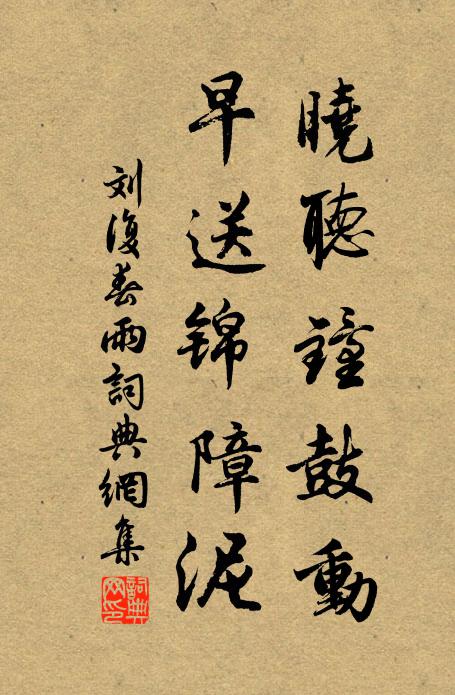 曉聽鐘鼓動
早送锦障泥
刘復春雨詞典網集
詞典网印